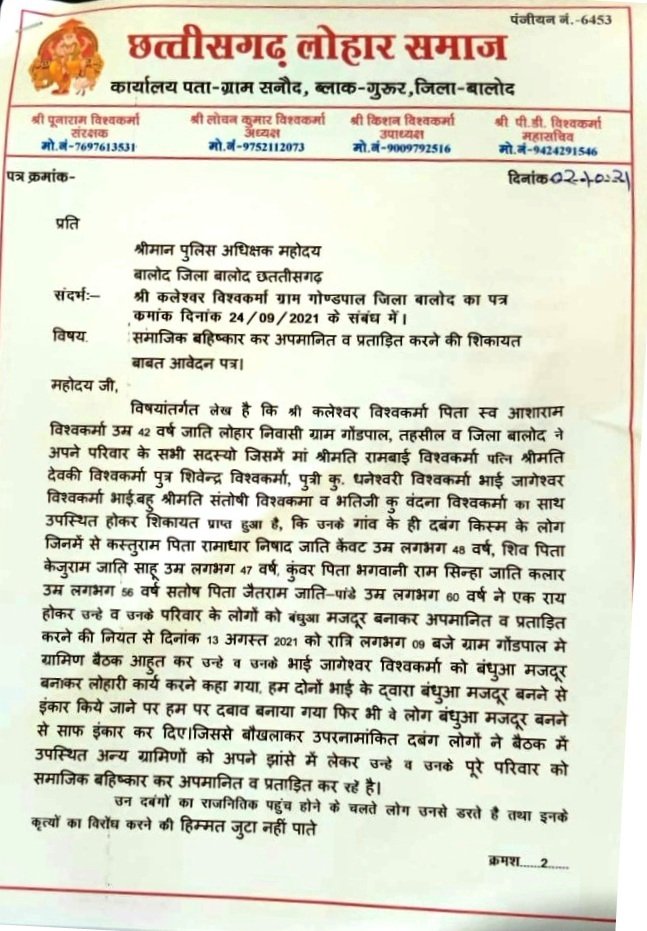 पंजीयन नं.-6453
छत्तीसगढ़ लोहार समाज
कार्यालय पता-ग्राम सनौद, ब्लाक-गुरूर,जिला-बालोद
श्री पूनाराम विश्वकर्मा
संरक्षक
मो.नं-7697613531
श्री लोचन कुमार विश्वकर्मा
अध्यक्ष
मो.नं-9752112073
श्री किशन विश्वकर्मा
उपाध्यक्ष
मो.नं-9009792516
श्री पी.डी. विश्वकर्मा
महासचिव
मो.नं-9424291546
पत्र क्रमांक-
दिनांक
प्रति
श्रीमान पुलिस अधिक्षक महोदय
बालोद जिला बालोद छततीसगढ़
संदर्भः– श्री कलेश्वर विश्वकर्मा ग्राम गोण्डपाल जिला बालोद का पत्र
कमांक दिनांक 24/09/2021 के संबंध में।
विषय. :समाजिक बहिष्कार कर अपमानित व प्रताड़ित करने की शिकायत
बाबत आवेदन पत्र।
महोदय जी,
विषयांतर्गत लेख है कि श्री कलेश्वर विश्वकर्मा पिता स्व आशाराम
विश्वकर्मा उम्र 42 वर्ष जाति लोहार निवासी ग्राम गोंडपाल, तहसील व जिला बालोद ने
अपने परिवार के सभी सदस्यो जिसमें मां श्रीमति रामबाई विश्वकर्मा पत्नि श्रीमति
देवकी विश्वकर्मा पुत्र शिवेन्द्र विश्वकर्मा, पुत्री कु. धनेश्वरी विश्वकर्मा भाई जागेश्वर
विश्वकर्मा भाई.बहु श्रीमति संतोषी विश्वकमा व भतिजी कु वंदना विश्वकर्मा का साथ
उपस्थित होकर शिकायत प्राप्त हुआ है, कि उनके गांव के ही दबंग किस्म के लोग
जिनमें से कस्तुराम पिता रामाधार निषाद जाति केंवट उम्र लगभग 48 वर्ष, शिव पिता
केजुराम जाति साहू उम्र लगभग 47 वर्ष, कुंवर पिता भगवानी राम सिन्हा जाति कलार
उम्र लगभग 56 वर्ष सतोष पिता जैतराम जाति–पांडे उम्र लगभग 60 वर्ष ने एक राय
होकर उन्हे व उनके परिवार के लोगों को बंधुआ मजदूर बनाकर अपमानित व प्रताड़ित
करने की नियत से दिनांक 13 अगस्त 2021 को रात्रि लगभग 09 बजे ग्राम गोंडपाल मे
ग्रामिण बैठक आहुत कर उन्हे व उनके भाई जागेश्वर विश्वकर्मा को बंधुआ मजदूर
बनाकर लोहारी कार्य करने कहा गया, हम दोनों भाई के द्वारा बंधुआ मजदूर बनने से
इंकार किये जाने पर हम पर दबाव बनाया गया फिर भी वे लोग बंधुआ मजदूर बनने
से साफ इंकार कर दिए।जिससे बौखलाकर उपरनामांकित दबंग लोगों ने बैठक में
उपस्थित अन्य ग्रामिणों को अपने झांसे में लेकर उन्हे व उनके पूरे परिवार को
समाजिक बहिष्कार कर अपमानित व प्रताड़ित कर रहें है।
उन दबंगों का राजनितिक पहुंच होने के चलते लोग उनसे डरते है तथा इनके
कृत्यों का विरोध करने की हिम्मत जुटा नहीं पाते
क्रमश.....2......